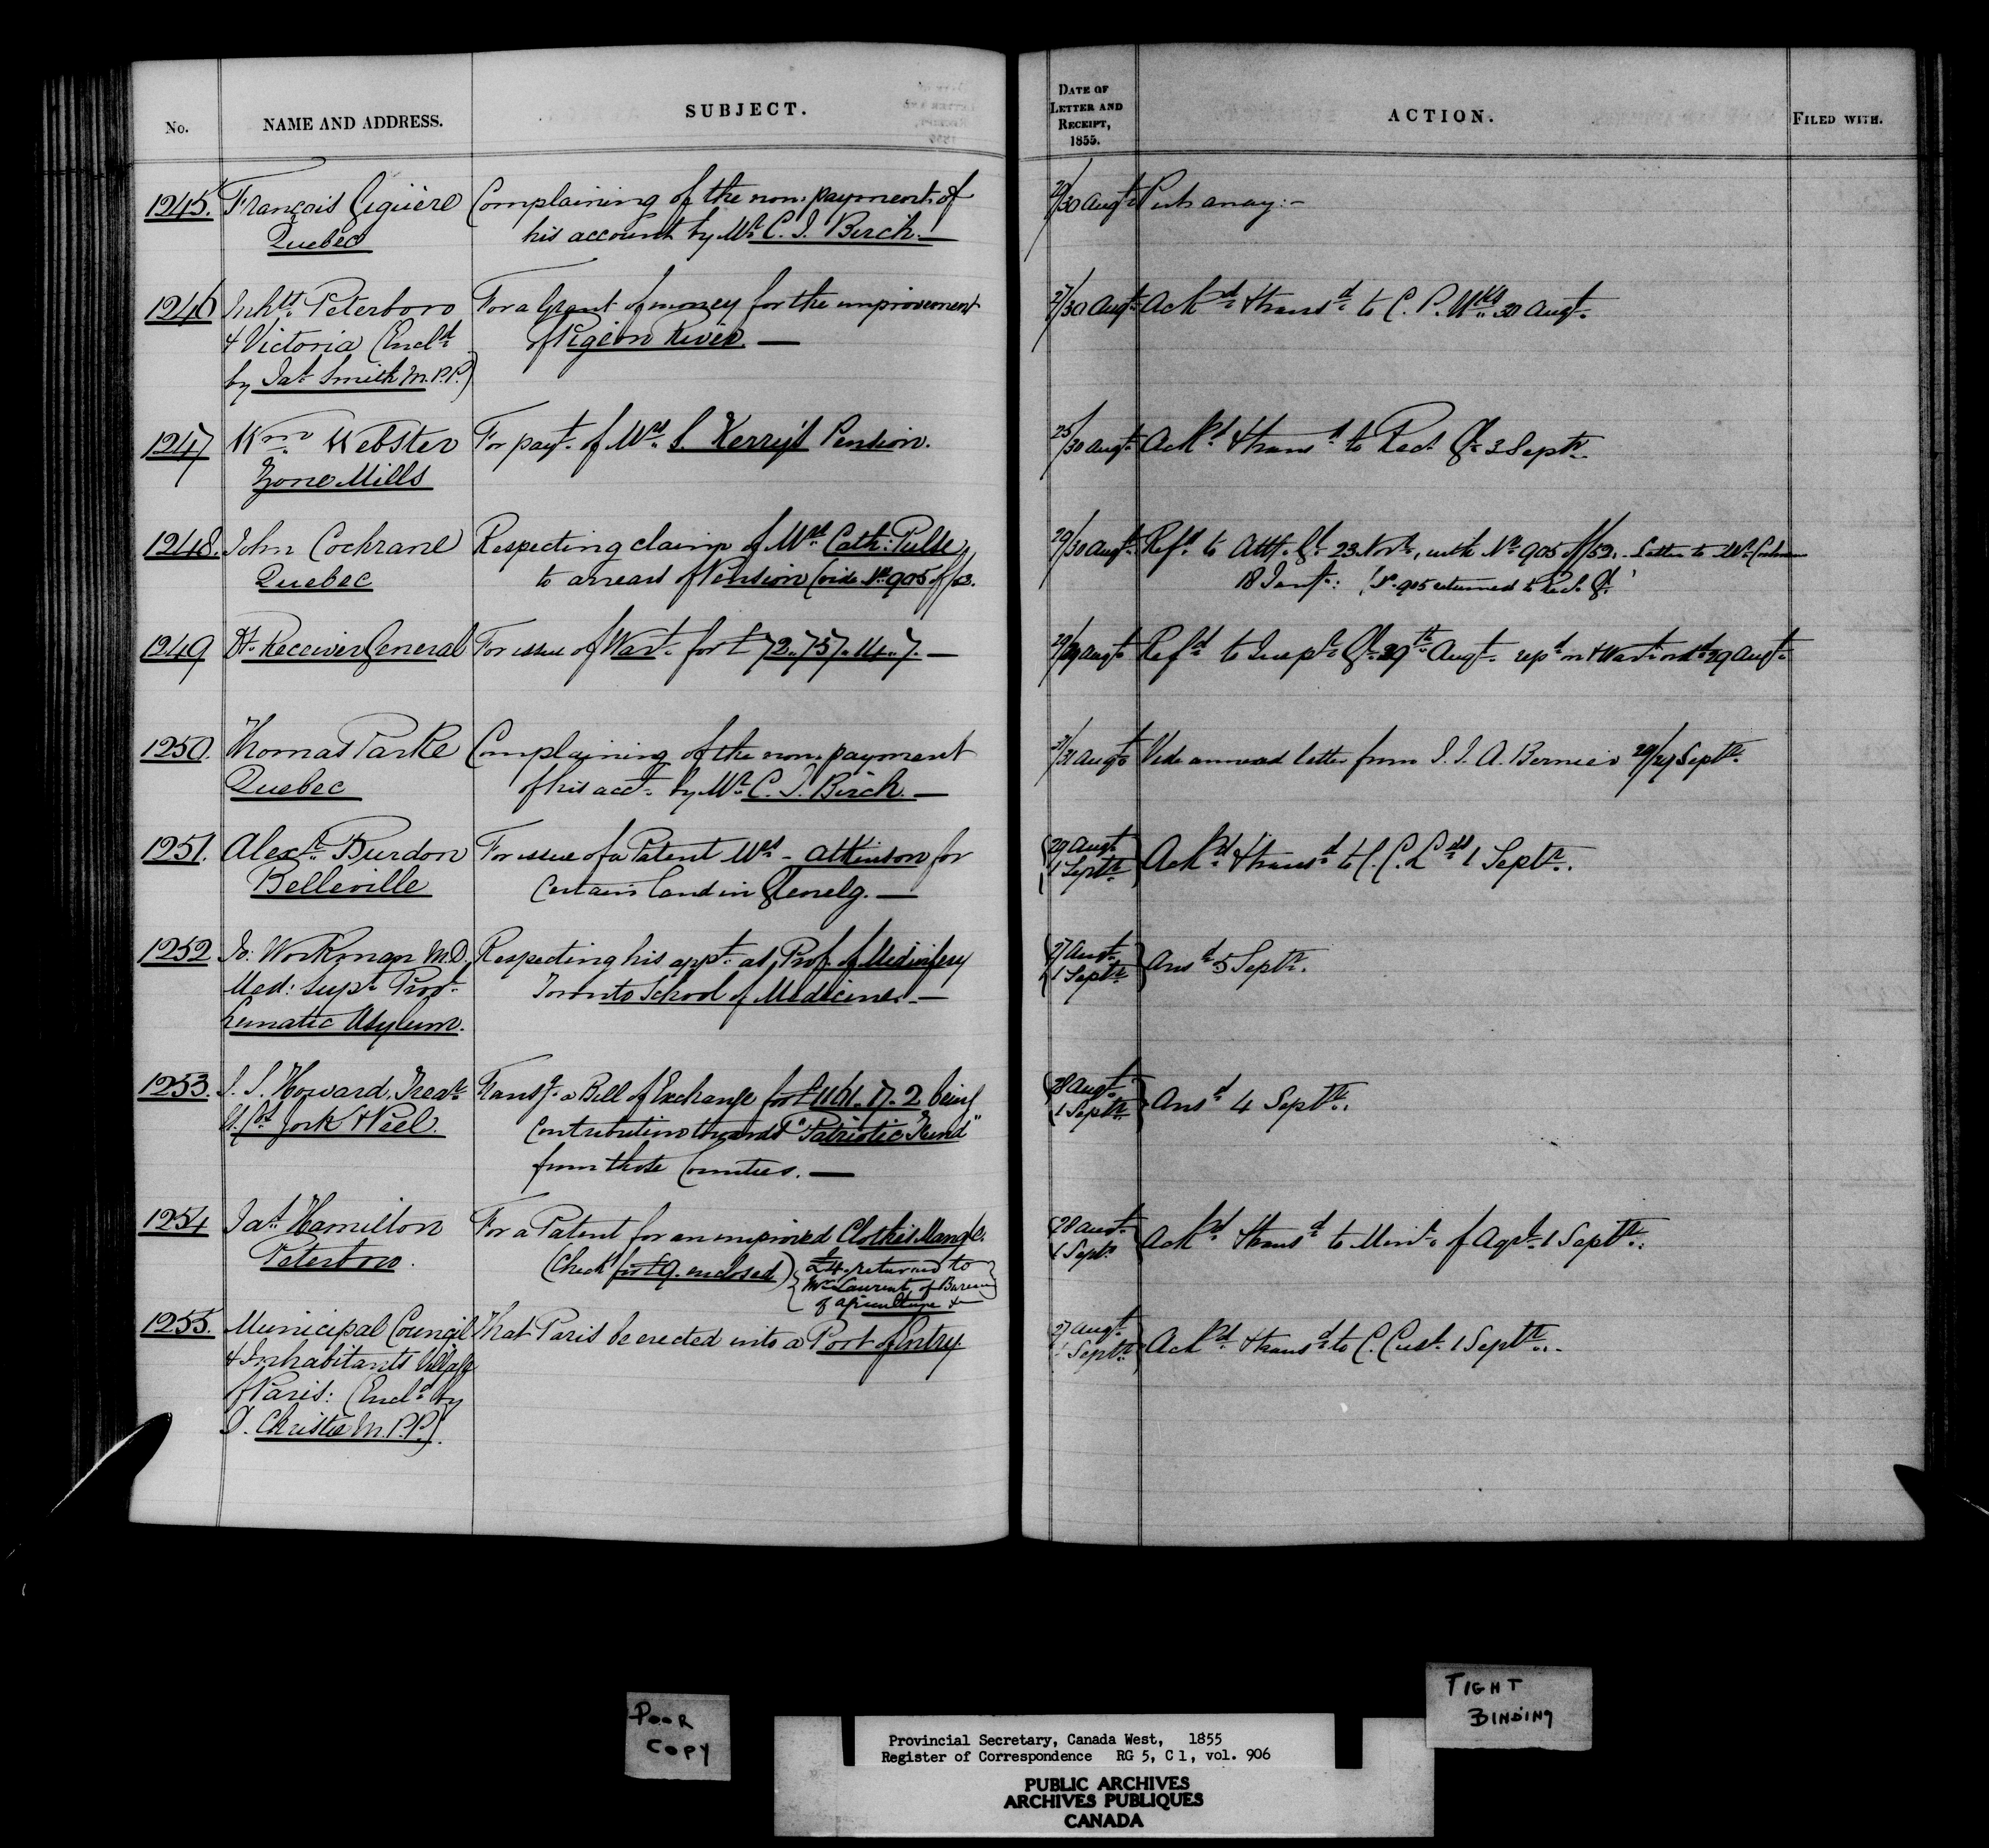 No.
NAME AND ADDRESS.
SUBJECT.
DATE OF LETTER AND RECEIPT, 1855.
ACTION.
FILED WITH.
1245. François Giguère Complaining of the non-payment of 29/30 Augt Put away:-
Quebec his account by Mr. C. J. Birch.—
1246 Inhts. Peterboro For a Grant of money for the improvement 27/30 Augt Ackd. & transd. to C. P. Wks 30 Augt.
& Victoria (Encld. of Pigeon River. —
by Jas. Smith M.P.P.)
1247 Wm. Webster For payt. of Mrs. S. Kerry's Pension. 25/30 Augt Ackd. & transd. to Rec. Gl. 3 Septr.
Zone Mills
1248. John Cochrane Respecting claim of Mrs. Cath: Pulse 29/30 Augt. Refd. to Att. Gl. 23 Novr., with No. 905 of/53. Letter to Mr. Cochrane
Quebec to arrears of Pension (vide No. 905 of/53. 18 Jany.: (No. 905 returned to Rec. Gl.)
1249 H. Receiver General For issue of Wart. for £72,,757,,14,,7.— 29/29 Augt Refd. to Inspr. Gl. 29th Augt. repd. on & Wart. 29 Augt.
1250. Thomas Parke Complaining of the non-payment 31/31 Augt Vide annexed letter from J. J. A. Bernier 29/29 Septr.
Quebec of his acct. by Mr. C. J. Birch.—
1251. Alexr. Burdon For issue of a Patent Mrs. - Atkinson for (29 Augt 1 Septr.) Ackd. & transd. to C. C. Lds 1 Septr.
Belleville Certain Land in Glenelg.—
1252 Jo: Workman M.D. Respecting his appt. as Prof. of Midwifery (27 Augt. 1 Septr.) Ansd. 5 Septr.
Med: Supt. Prov. Toronto School of Medicine.—
Lunatic Asylum.
1253. J. S. Howard, Trear. Transg. a Bill of Exchange for £1161.17.2 being (28 Augt. 1 Septr.) Ansd. 4 Septr.
U. Cs. York & Peel. Contribution towards "Patriotic Fund"
from those Counties.—
1254 Jas. Hamilton For a Patent for an improved Clothes Mangle. (28 Augt. 1 Septr.) Ackd. & transd. to Minr. of Agre. 1 Septr.
Peterboro. (Check for £9. enclosed) {£4. returned to
Mr. Laurent, of Bureau
of Agriculture
1255. Municipal Council That Paris be erected into a Port of Entry. 27 Augt. 1 Septr. Ackd. & transd. to C. Cust. 1 Septr.
& Inhabitants Village
of Paris: (Encld. by
D. Christie M.P.P.).
POOR
COPY
TIGHT
BINDING
Provincial Secretary, Canada West, 1855
Register of Correspondence RG 5, C 1, vol. 906
PUBLIC ARCHIVES
ARCHIVES PUBLIQUES
CANADA